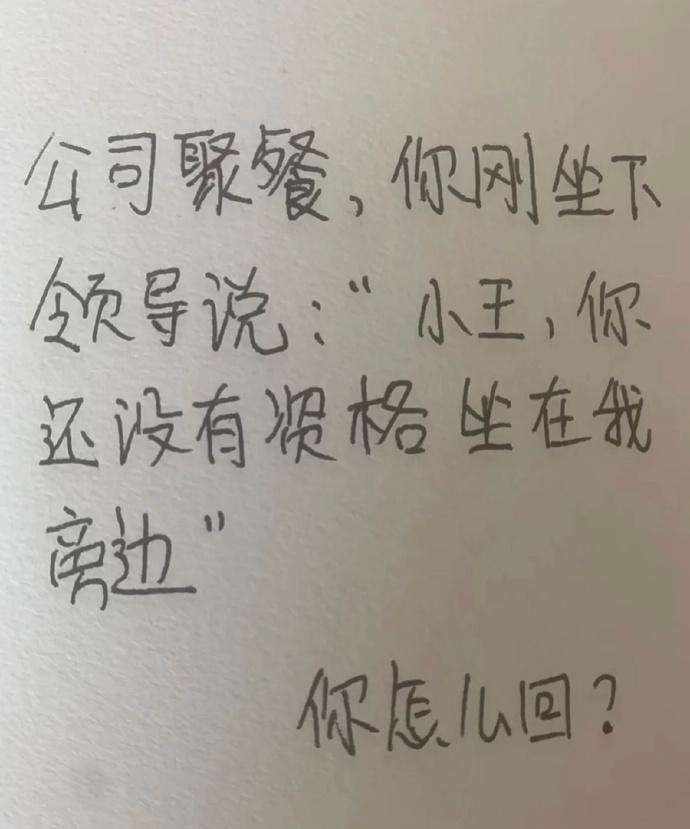 公司聚餐，你刚坐下
领导说：“小王，你
还没有资格坐在我
旁边”
你怎么回？